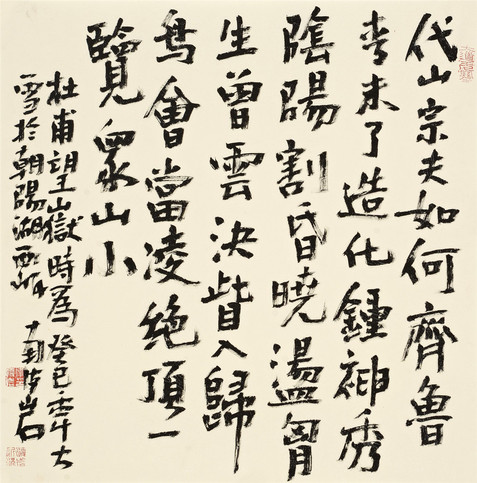 岱宗夫如何齊魯
青未了造化鍾神秀
陰陽割昏曉盪胷
生曾雲決眥入歸
鳥會當凌絕頂一
覽眾山小
杜甫望嶽時為癸巳年大
雪於朝陽湖西岸